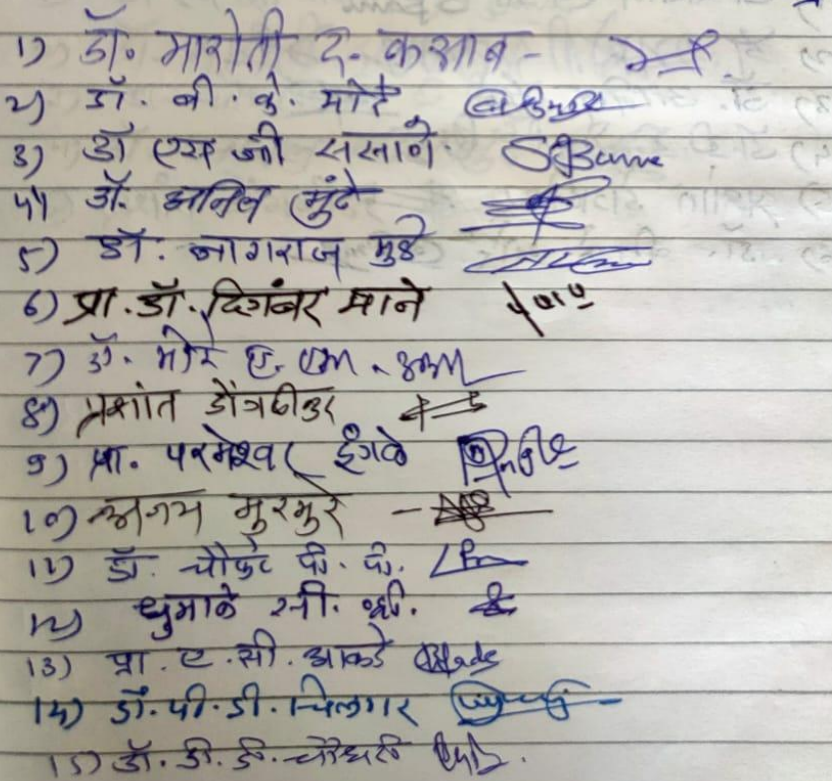 1) डॉ. मारोती द. कसाब -
2) डॉ. बी. के. मोरे
3) डॉ एस जी सस्ताने
4) डॉ. अनिल मुंढे
5) डॉ. नागराज मुळे
6) प्रा. डॉ. दिगंबर माने
7) डॉ. मोरे ए. एम.
8) प्रशांत डोंत्रढीकर
9) प्रा. परमेश्वर इंगळे
10) अजय मुरमुरे -
11) डॉ. चौकटे पी. पी.
12) धुमाळे सी. व्ही.
13) प्रा. ए. सी. आकडे
14) डॉ. पी. डी. चिलगर
15) डॉ. डी. डी. चौधरी